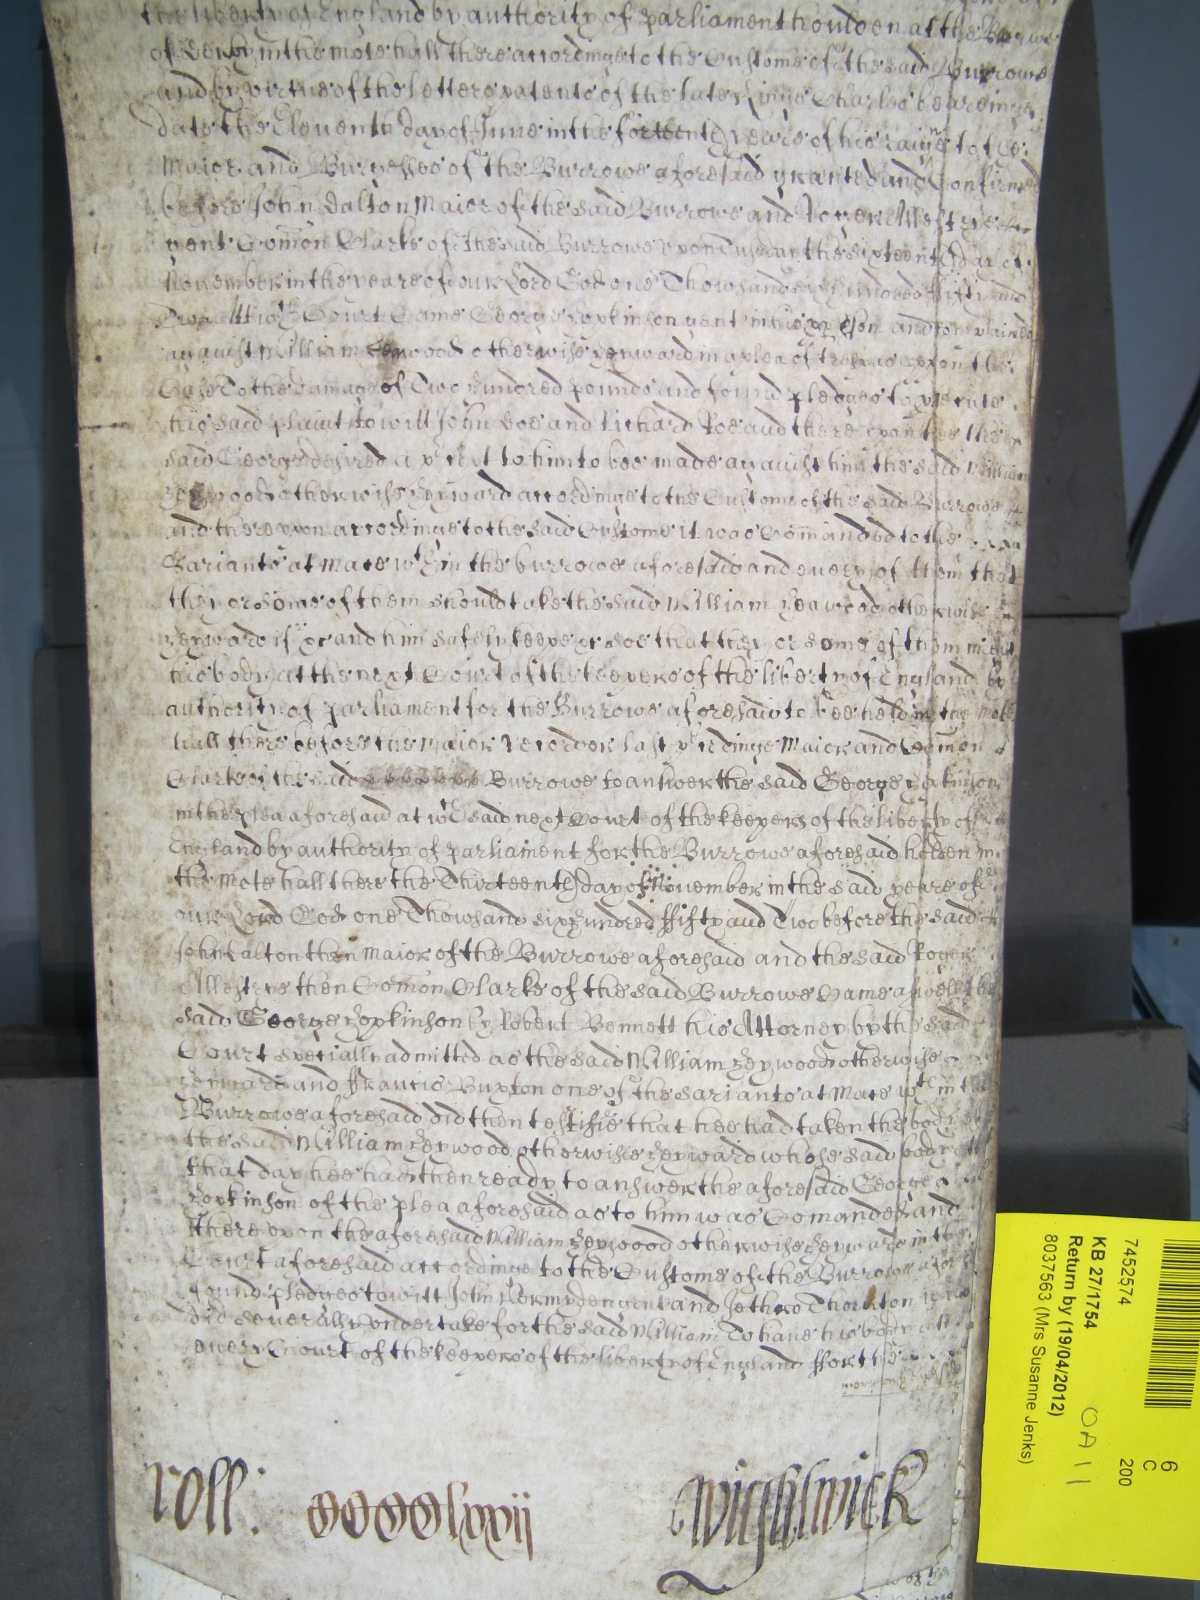 the liberty of England by authority of parliament houlden at the Burrowe
of Derby in the mote hall there accordinge to the Custome of the said Burrowe
and by virtue of the letters patents of the late Kinge Charles beareinge
date the Eleventh day of June in the yeare of his raigne to the
Maior and Burgesses of the Burrowe aforesaid granted and Confirmed
before John Dalton Maior of the said Burrowe and Roger Allestrye
gent Comon Clarke of the said Burrowe upon Tuesday the sixteenth day of
November in the yeare of our Lord God one Thowsand six hundred fifty and
Two Att wch Court Came George Hopkinson gent in his pper pson and complained
against William Heywood otherwise Heyward in a plea of trespas upon the
Case To the damage of Two hundred pounds and found pledges to psecute
his said plaint to witt John Doe and Richard Roe and there upon hee the
said George desired a pcept to him to bee made against him the said William
Heywood otherwise Heyward accordinge to the Custome of the said Burrowe
and there upon accordinge to the said Custome it was Comanded to the
Sariants at Mace wthin the burrowe aforesaid and every of them that
they or some of them should take the said William Heywood otherwise
Heyward if &c and him safely keepe &c soe that they or some of them might
his body at the next Court of the keepers of the liberty of England by
authority of parliament for the Burrowe aforesaid to bee held in the Mote
hall there before the Maior Recorder last pcedinge Maior and Comon
Clarke of the said Burrowe to answer the said George Hopkinson
in the plea aforesaid at wch said next Court of the keepers of the liberty of
England by authority of parliament for the Burrowe aforesaid holden in
the Mote hall there the Thirteenth day of November in the said yeare of
our Lord God one Thowsand six hundred fifty and Two before the said
John Dalton then Maior of the Burrowe aforesaid and the said Roger
Allestrye then Comon Clarke of the said Burrowe Came aswell the
said George Hopkinson by Robert Bennett his Attorney by the said
Court specially admitted as the said William Heywood otherwise
Heyward and Francis Buxton one of the Sariants at Mace wthin the
Burrowe aforesaid did then testifie that hee had taken the body
the said William Heywood otherwise Heyward whose said body
that day hee had then ready to answer the aforesaid George
Hopkinson of the plea aforesaid as to him was Comanded and
there upon the aforesaid William Heywood otherwise Heyward in the
Court aforesaid accordinge to the Custome of the Burrowe
found pledges to witt John gent and Jethro Thornton
did severally undertake for the said William To have his body
every Court of the keepers of the liberty of England for the
roll: CCCClxvij
Wightwick
7452574
KB 27/1754
Return by (19/04/2012)
8037563 (Mrs Susanne Jenks)
6
C
200
OA11